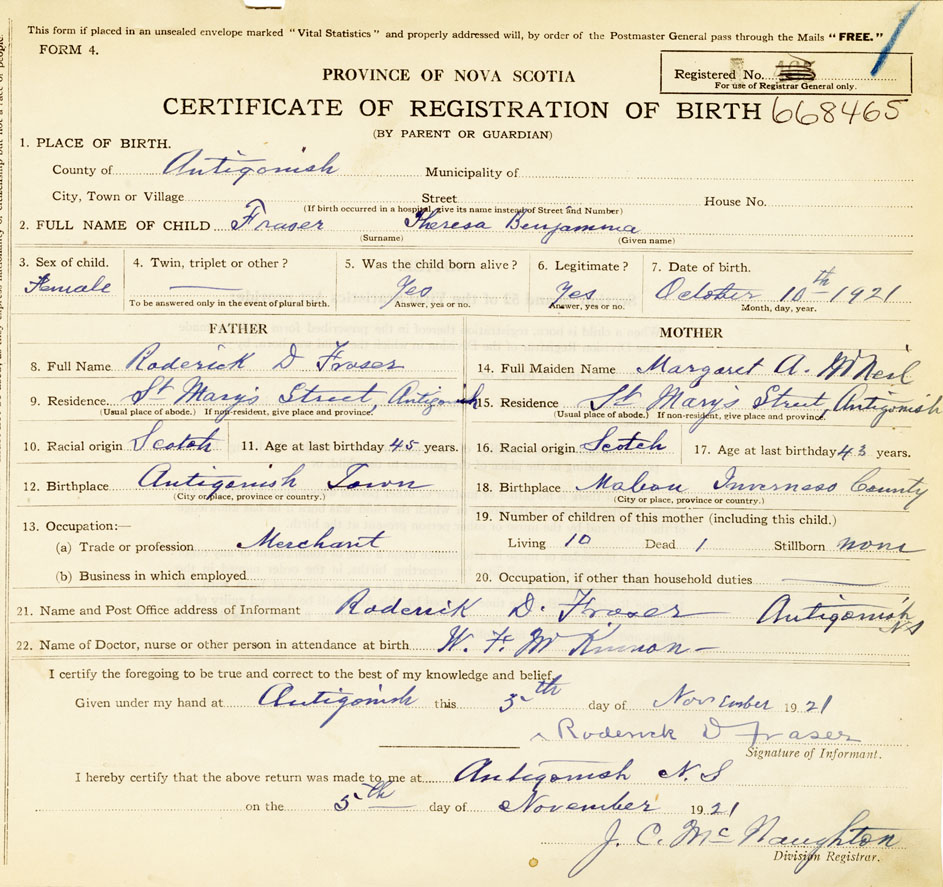 This form if placed in an unsealed envelope marked "Vital Statistics" and properly addressed will, by order of the Postmaster General pass through the Mails "FREE."
FORM 4.
PROVINCE OF NOVA SCOTIA
Registered No.
For use of Registrar General only.
CERTIFICATE OF REGISTRATION OF BIRTH 668465
(BY PARENT OR GUARDIAN)
1. PLACE OF BIRTH.
County of Antigonish Municipality of
City, Town or Village Street House No.
(If birth occurred in a hospital, give its name instead of Street and Number)
2. FULL NAME OF CHILD Fraser Theresa Benjamina
(Surname) (Given name)
3. Sex of child. 4. Twin, triplet or other? 5. Was the child born alive? 6. Legitimate? 7. Date of birth.
Female Yes Yes October 10th 1921
To be answered only in the event of plural birth. Answer, yes or no. Answer, yes or no. Month, day, year.
FATHER MOTHER
8. Full Name Roderick D Fraser 14. Full Maiden Name Margaret A. McNeil
9. Residence St Mary's Street, Antigonish 15. Residence St Mary's Street, Antigonish
(Usual place of abode.) If non-resident, give place and province. (Usual place of abode.) If non-resident, give place and province.
10. Racial origin Scotch 11. Age at last birthday 45 years. 16. Racial origin Scotch 17. Age at last birthday 43 years.
12. Birthplace Antigonish Town 18. Birthplace Mabou Inverness County
(City or place, province or country.) (City or place, province or country.)
13. Occupation:— 19. Number of children of this mother (including this child.)
(a) Trade or profession Merchant Living 10 Dead 1 Stillborn none
(b) Business in which employed 20. Occupation, if other than household duties
21. Name and Post Office address of Informant Roderick D. Fraser Antigonish NS
22. Name of Doctor, nurse or other person in attendance at birth W. F. McKinnon
I certify the foregoing to be true and correct to the best of my knowledge and belief.
Given under my hand at Antigonish this 5th day of November 1921
Roderick D Fraser
Signature of Informant.
I hereby certify that the above return was made to me at Antigonish N.S
on the 5th day of November 1921
J. C. McNaughton
Division Registrar.